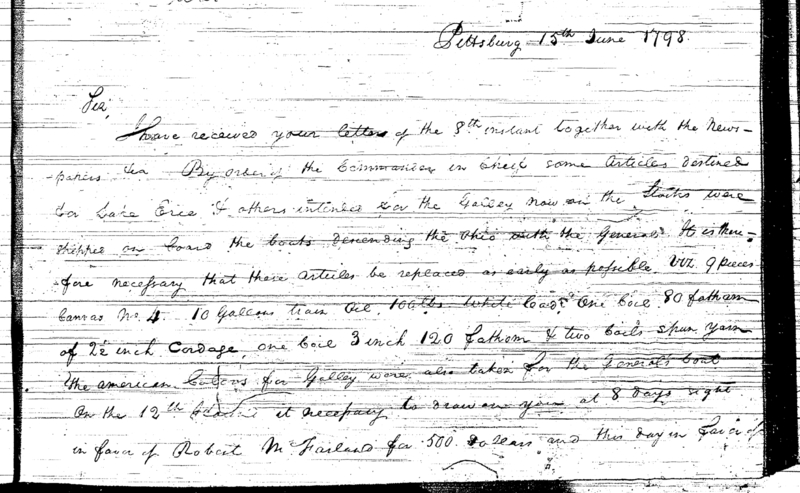 Pittsburg 15th June 1798.
Sir,
I have received your letter of the 8th instant together with the News-
-papers &ca By order of the Commander in Cheif some Articles destined
for Lake Erie & others intended for the Galley now on the Stocks were
shipped on board the boats descending the Ohio with the General. It is there-
-fore necessary that these articles be replaced as early as possible. Viz. 9 pieces
Canvas No. 4. 10 Gallons train Oil, 100 lbs White Lead, One Coil 80 fathom
of 2½ inch Cordage, one Coil 3 inch 120 fathom & two Coils spun yarn
the american Colours for Galley were also taken for the General's boat
On the 12th it necessary to draw on you at 8 days sight
in favor of Robert McFarland for 500 Dollars and this day in favor of